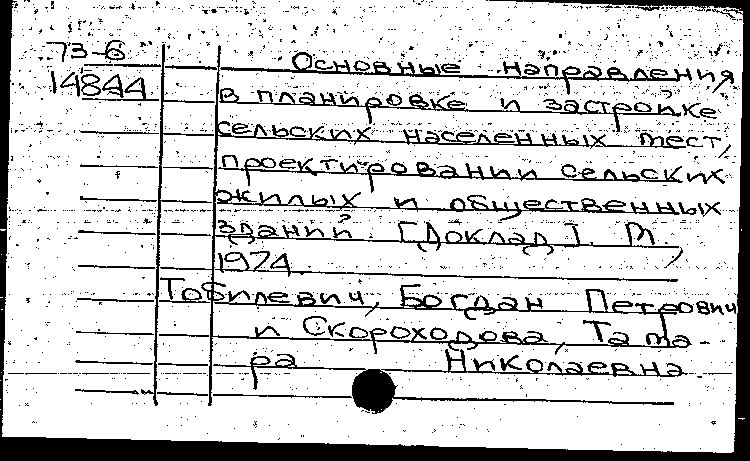 73-6
14844
Основные направления
в планировке и застройке
сельских населенных мест,
проектировании сельских
жилых и общественных
зданий. [Доклад]. М.,
1974.
Тобилевич, Богдан Петрович
и Скороходова, Тама-
ра Николаевна.